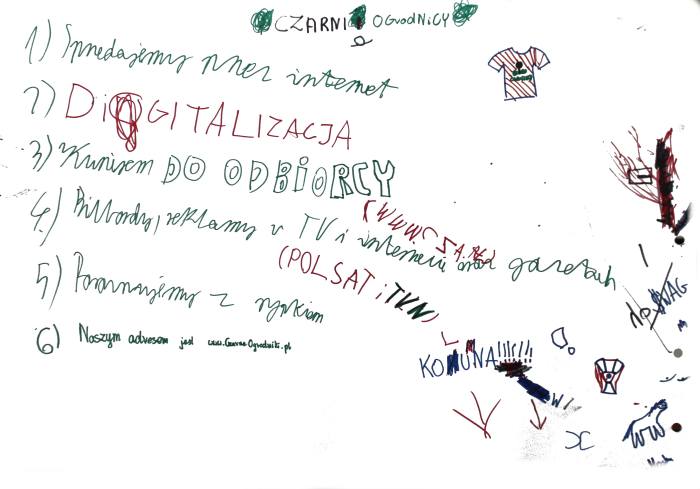 CZARNI OGRODNICY
1) Sprzedajemy przez internet
2) DIGITALIZACJA
3) Kurierem DO ODBIORCY
4) Bilbordy, reklamy w TV i internecie oraz gazetach
(POLSAT i TVN)
5) Porównujemy z rynkiem
6) Naszym adresem jest www.CzarneOgrodniki.pl
KOMUNA!!!!!!
SWAG